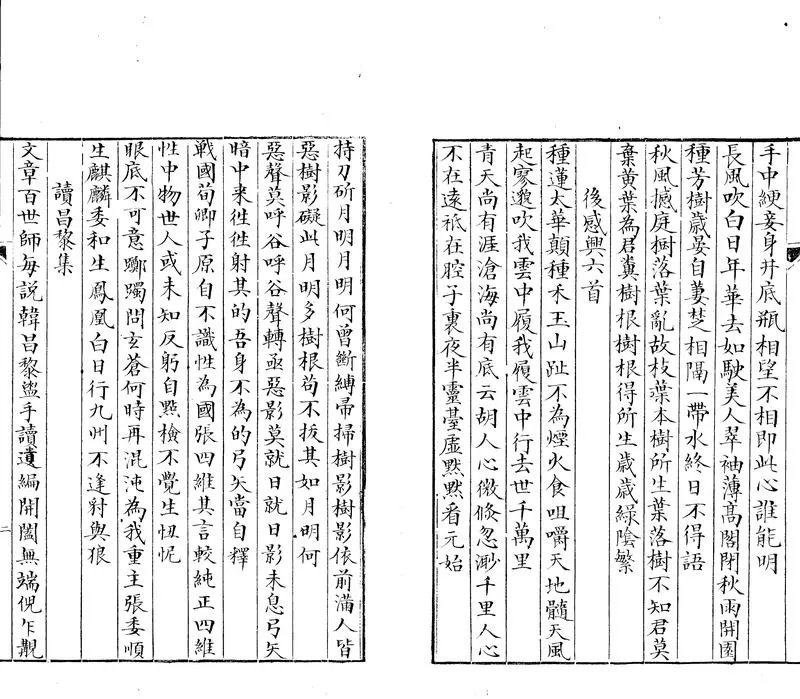 手中綆妾身井底瓶相望不相即此心誰能明
長風吹白日年華去如駛美人翠袖薄髙閣閉秋雨開園
種芳樹歲晏自萋楚相隔一帶水終日不得語
秋風撼庭樹落葉亂故枝葉本樹所生葉落樹不知君莫
棄黄葉為君糞樹根樹根得所生歲歲緑陰繁
後感興六首
種蓮太華顛種禾玉山趾不為煙火食咀嚼天地髓天風
起寥邈吹我雲中履我履雲中行去世千萬里
青天尚有涯滄海尚有底云胡人心微倐忽渺千里人心
不在逺祗在腔子裏夜半靈臺虚黙黙看元始
持刀斫月明月明何曾斷縛帚掃樹影樹影依前滿人皆
惡樹影礙此月明多樹根茍不拔其如月明何
惡聲莫呼谷呼谷聲轉亟惡影莫就日就日影未息弓矢
暗中来徃徃射其的吾身不為的弓矢當自釋
戰國荀卿子原自不識性為國張四維其言較純正四維
性中物世人或未知反躬自㸃檢不覺生忸怩
眼底不可意躑躅問玄蒼何時再混沌為我重主張委順
生麒麟委和生鳳凰白日行九州不逢豺與狼
讀昌黎集
文章百世師毎説韓昌黎盥手讀遺編開闔無端倪乍覩
二